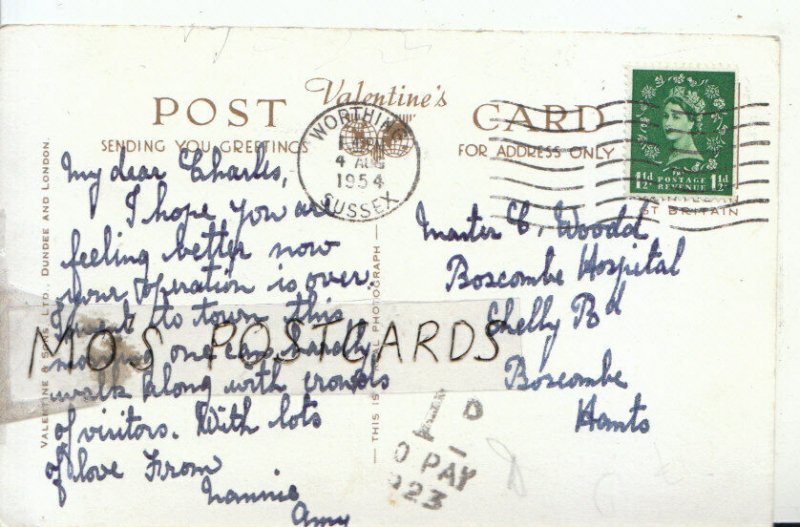 POST Valentine's CARD
SENDING YOU GREETINGS
FOR ADDRESS ONLY
WORTHING
4 AUG
1954
SUSSEX
1½d POSTAGE REVENUE 1½d
ST BRITAIN
VALENTINE & SONS, LTD., DUNDEE AND LONDON.
My dear Charles,
I hope you are
feeling better now
your operation is over.
I went to town this
morning one can hardly
walk along with crowds
of visitors. With lots
of love From
Nannie
Amy
— THIS IS A REAL PHOTOGRAPH —
Master C. Woodd
Boscombe Hospital
Shelly Rd
Boscombe
Hants
MOS POSTCARDS
1D
O PAY
923